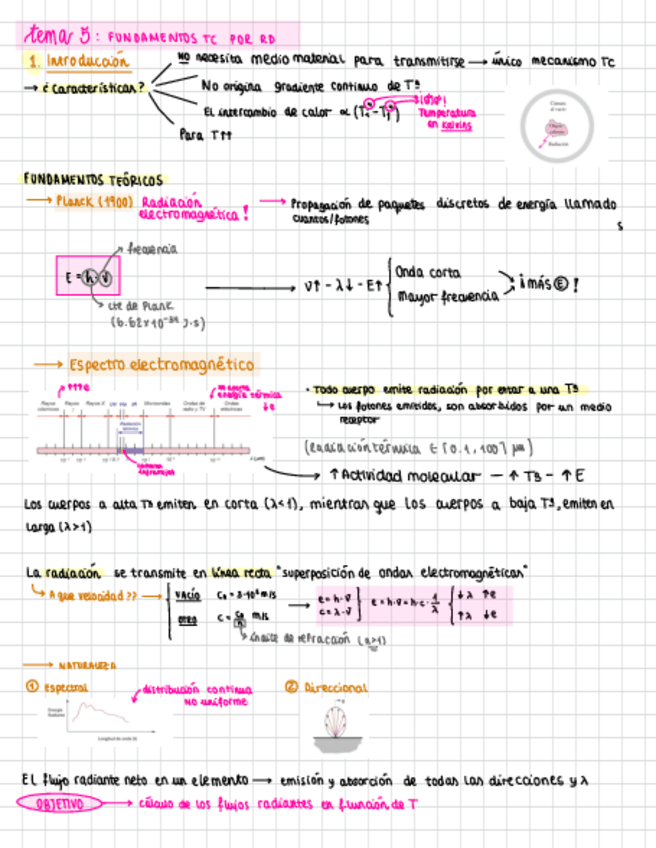 tema 5: FUNDAMENTOS TC POR RD
1. Introducción
NO necesita medio material para transmitirse → único mecanismo TC
→ ¿características?
No origina gradiente continuo de Tª
El intercambio de calor ∝ (Ti⁴-Tj⁴)
¡ojo!
Temperatura
en Kelvins
Para T↑↑
Cámara
al vacío
Radiación
FUNDAMENTOS TEÓRICOS
→ Planck (1900) Radiación electromagnética!
→ Propagación de paquetes discretos de energía llamado
cuantos/fotones
s
frecuencia
E = h·ν
cte de Planck
(6.62x10⁻³⁴ J·s)
→ ν↑ - λ↓ - E↑
Onda corta
mayor frecuencia
¡MÁS E!
→ Espectro electromagnético
↑↑↑e
energía térmica
↓e
Rayos cósmicos
Rayos
Rayos X
UV
Vis
IR
Microondas
Ondas de radio y TV
Ondas eléctricas
Radiación térmica
· Todo cuerpo emite radiación por estar a una Tª
↳ Los fotones emitidos, son absorbidos por un medio
receptor
(Radiación térmica ∈ [0.1, 100] μm)
→ ↑ Actividad molecular — ↑ Tª - ↑ E
Los cuerpos a alta Tª emiten en corta (λ<1), mientras que los cuerpos a baja Tª, emiten en
larga (λ>1)
La radiación se transmite en línea recta "superposición de ondas electromagnéticas"
↳ A que velocidad ?? →
VACÍO C₀ = 3·10⁸ m/s
OTRO C = C₀/n m/s
índice de refracción (n>1)
→ e=h·ν
c=λ·ν
e=h·ν=h·c·1/λ
↓λ ↑e
↑λ ↓e
→ NATURALEZA
① Espectral
distribución continua
NO uniforme
② Direccional
Energía
Radiante
Longitud de onda (λ)
El flujo radiante neto en un elemento → emisión y absorción de todas las direcciones y λ
OBJETIVO → cálculo de los flujos radiantes en función de T